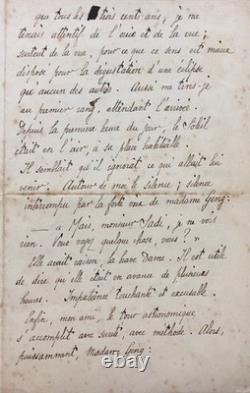 que tous les trois cents ans, je me
tenais attentif de l'ouïe et de la vue ;
surtout de la vue, pour ce que ce sens est mieux
disposé pour la dégustation d'une éclipse
que aucun des autres. Aussi me tins-je
au premier rang, attendant l'arrivée.
Depuis la première heure du jour, le Soleil
était en l'air, à sa place habituelle.
Il semblait qu'il ignorait ce qui allait lui
venir. Autour de moi le silence ; silence
interrompu par la forte voix de madame
— « Mais, monsieur je ne vois
rien. Vous voyez quelque chose, vous ? »
Elle avait raison, la bonne Dame. Il est utile
de dire qu'elle était en avance de plusieurs
heures. Impatience touchante et excusable.
Enfin, mon ami, le tour astronomique
s'accomplit avec succès, avec méthode. Alors,
puissamment, Madame
© ebay